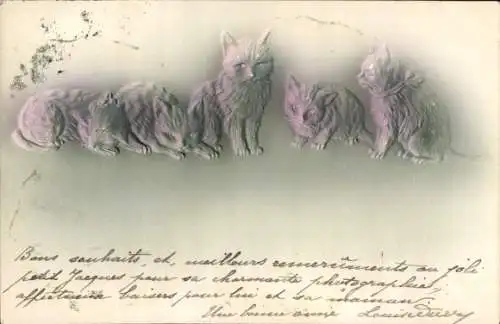 Bons souhaits et meilleurs remerciments au joli
petit Jacques pour sa charmante photographie,
affectueux baisers pour lui et sa maman.
Une bonne amie Louise